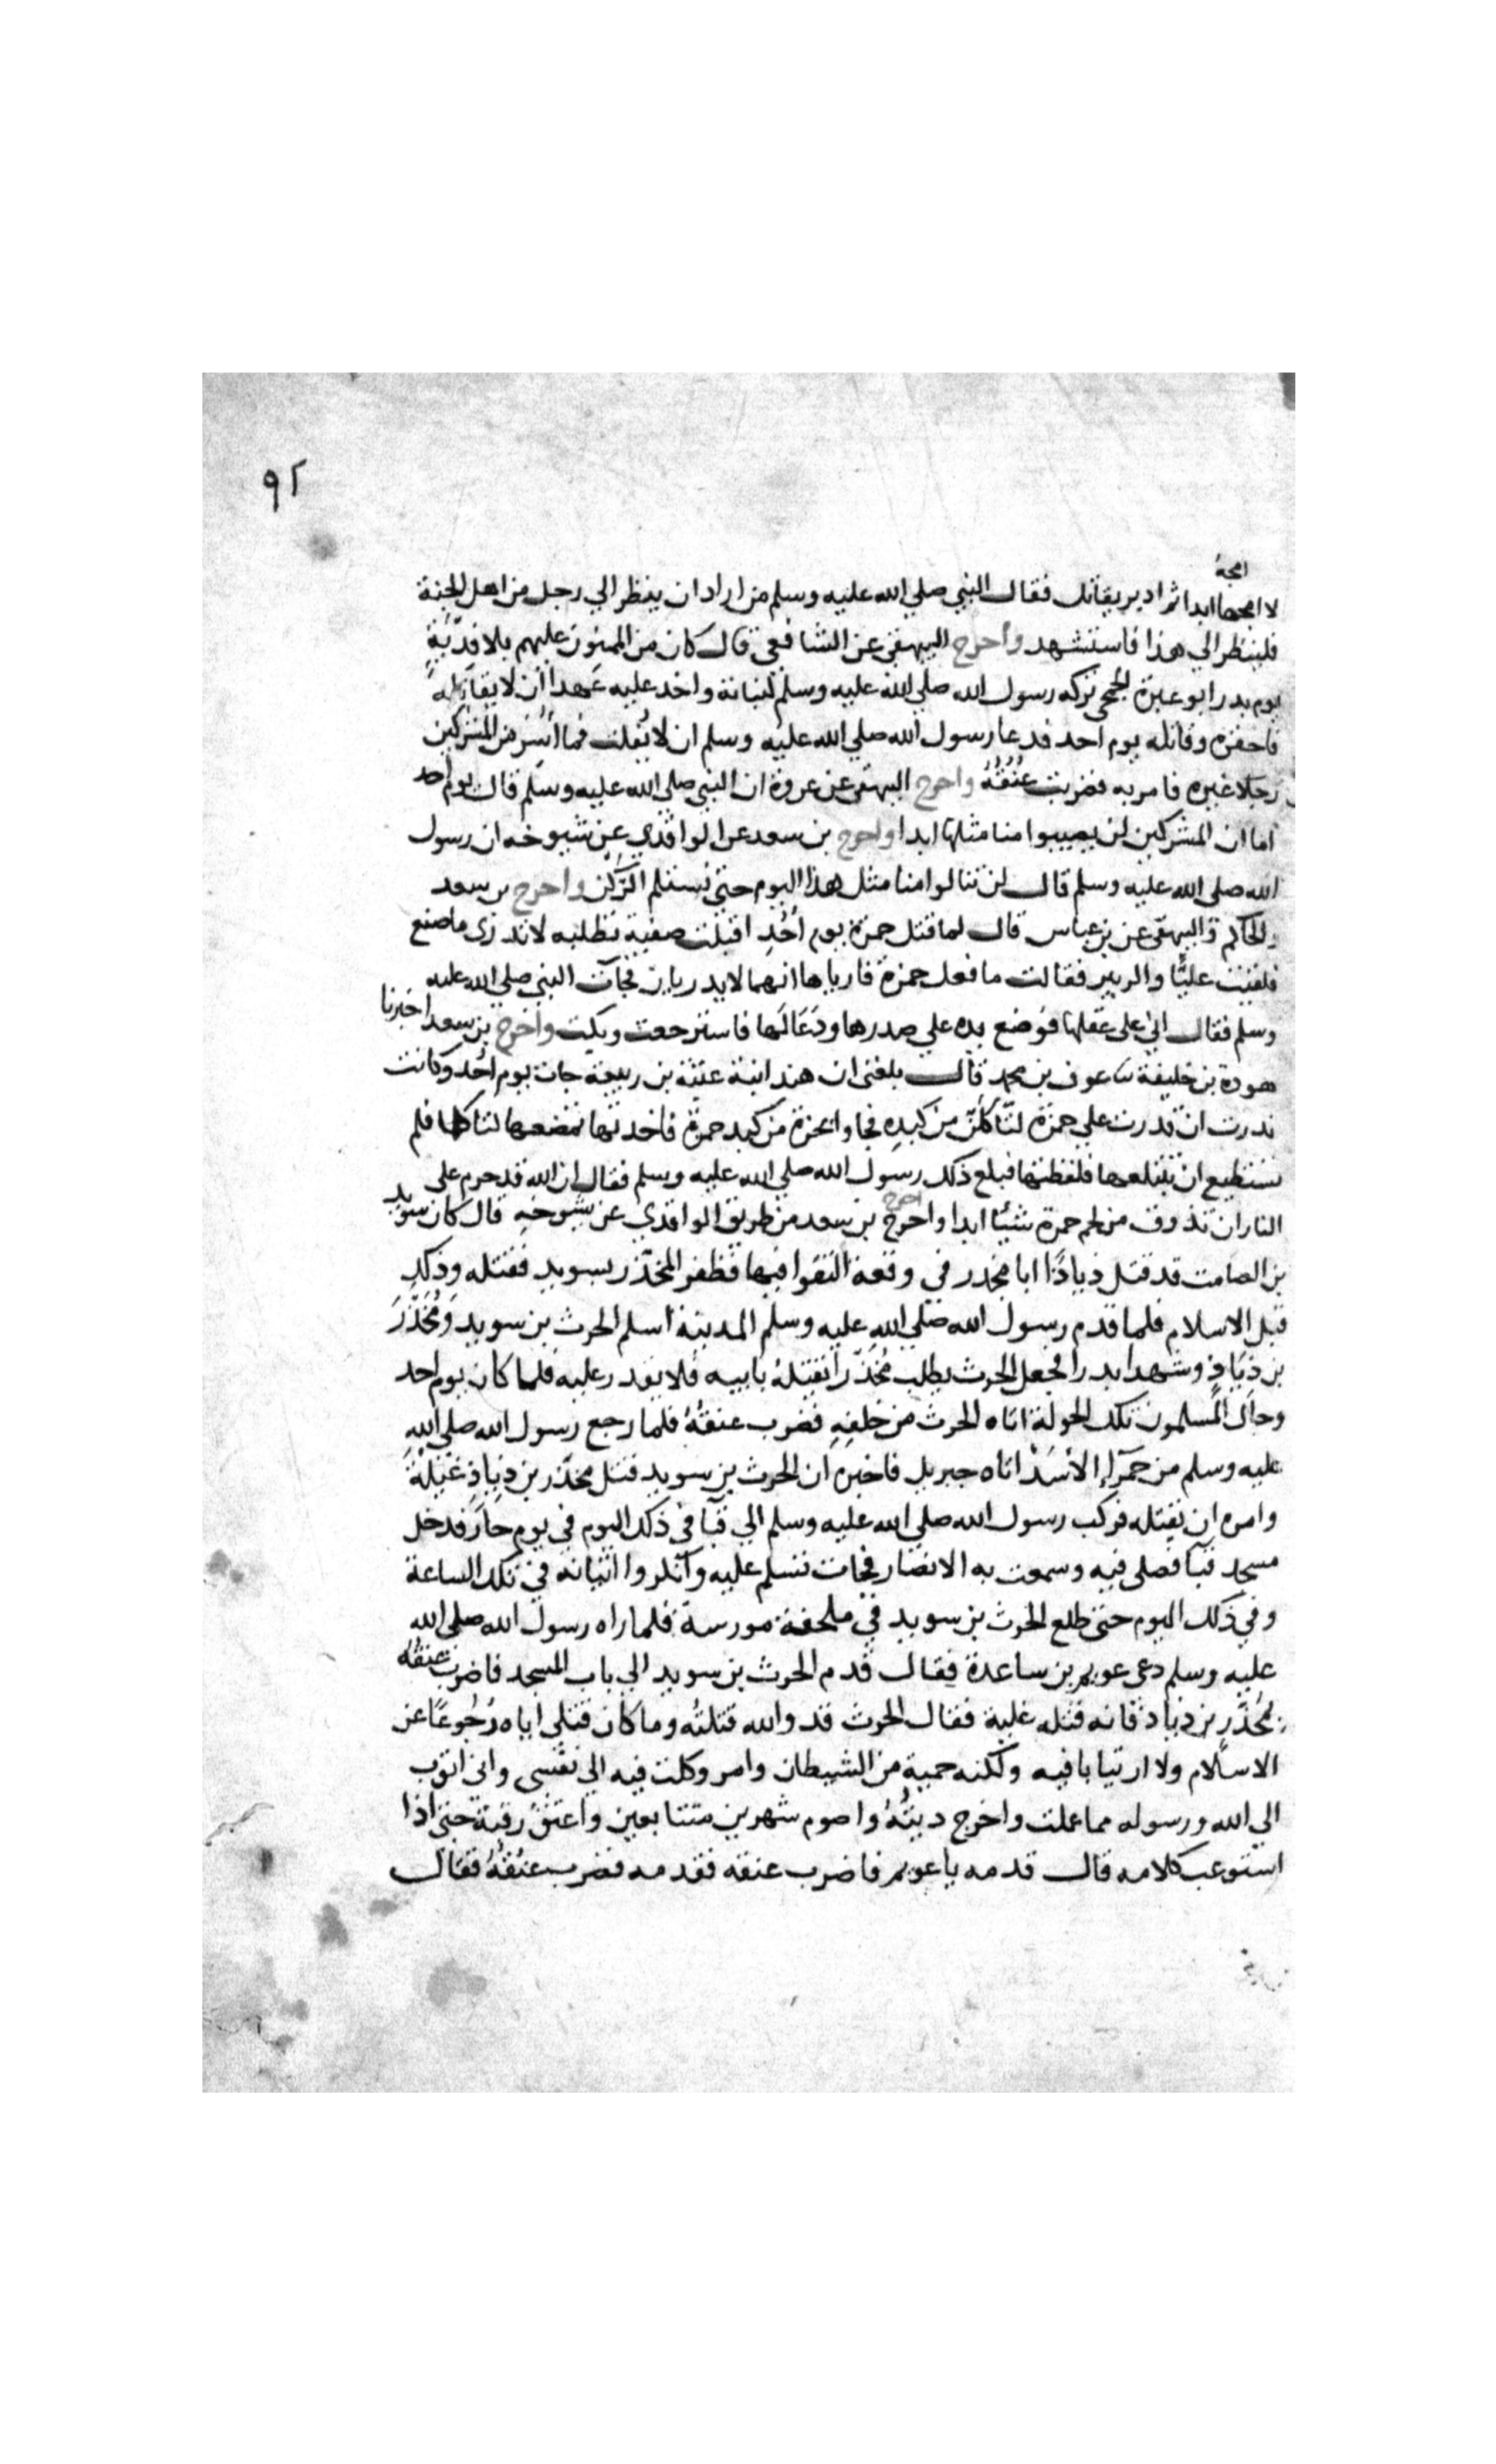 ٩٢
امجه
لا امجها ابدا ثم ادبر يقاتل فقال النبي صلي الله عليه وسلم من اراد ان ينظر الي رجل من اهل الجنة
فلينظر الي هذا فاستشهد واخرج البيهقي عن الشافعي قال كان من الممنون عليهم بلا فدية
يوم بدر ابو عزة الجمحي تركه رسول الله صلي الله عليه وسلم لبناته واخذ عليه عهدا ان لا يقاتله
فاخفره وقاتله يوم احد فدعا رسول الله صلي الله عليه وسلم ان لا يُفلت فما أُسر من المشركين
رجلا غيره فامر به فضربت عُنُقُهُ واخرج البيهقي عن عروة ان النبي صلي الله عليه وسلم قال يوم احد
اما ان المشركين لن يصيبوا منا مثلها ابدا واخرج بن سعد عن الواقدي عن شيوخه ان رسول
الله صلي الله عليه وسلم قال لن تنالوا منا مثل هذا اليوم حتي نستلم الرُّكْن واخرج بن سعد
والحاكم والبيهقي عن بن عباس قال لما قتل حمزة يوم أُحُدٍ اقبلت صفية تطلبه لا تدري ما صنع
فلقيت عليًّا والزبير فقالت ما فعل حمزة فارياها انهما لا يدريان فجآت النبي صلي الله عليه
وسلم فقال اني علي عقلها فوضع يده علي صدرها ودَعَا لَها فاسترجعت وبكت واخرج بن سعد اخبرنا
هوذة بن خليفة ثنا عوف بن محمد قال بلغني ان هند ابنة عتبة بن ربيعة جات يوم اُحُد وكانت
نذرت ان قدرت علي حمزة لتاكلن من كبدِه فجاوا بحزة من كبد حمزة فاخذتها تمضغها لتاكلها فلم
تستطيع ان تبتلعها فلفظتها فبلغ ذلك رسول الله صلي الله عليه وسلم فقال ان الله قد حرم علي
النار ان تذوق من لحم حمزة شيئا ابدا واخرج اخرج بن سعد من طريق الواقدي عن شيوخه قال كان سويد
بن الصامت قد قتل ذيادًا ابا مجذر في وقعة التقوا فيها فظفر المجَذّر بسويد فقتله وذلك
قبل الاسلام فلما قدم رسول الله صلي الله عليه وسلم المدينة اسلم الحرث بن سويد ومُجَذّر
بن ذِيَادٍ وشهدا بدرا فجعل الحرث يطلب مُجَذّرا ليقتلهُ بابيه فلا يقدر عليه فلما كان يوم احد
وجال المسلمون تلك الجولة اتاه الحرث من خلفِهِ فضرب عنقهُ فلما رجع رسول الله صلي الله
عليه وسلم من حَمرآءِ الأَسَد اتاه جبريل فاخبره ان الحرث بن سويد قتل مجَذّر بن ذِيادٍ غيلة
وامره ان يقتله فركب رسول الله صلي الله عليه وسلم الي قبا في ذلك اليوم في يوم حارٍّ فدخل
مسجد قبآ فصلي فيه وسمعت به الانصار فجات تسلم عليه وانكروا اتيانه في تلك الساعة
وفي ذلك اليوم حتي طلع الحرث بن سويد في ملحفة مورسة فلما راه رسول الله صلي الله
عليه وسلم دعي عويم بن ساعدة فقال قدم الحرث بن سويد الي باب المسجد فاضرب عنقه
بمُجَذّر بن ذياد فانه قتله غلية فقال الحرث قد والله قتلتُه وما كان قتلي اياه رُجُوعًا عن
الاسلام ولا ارتيابا فيه ولكنه حمية من الشيطان وامر وكلت فيه الي نفسي واني اتوب
الي الله ورسوله مما عملت واخرج ديتُهُ واصوم شهرين متتابعين واعتق رقبة حتي اذا
استوعب كلامه قال قدمه يا عويم فاضرب عنقه فقدمه فضرب عنُقهُ فقال